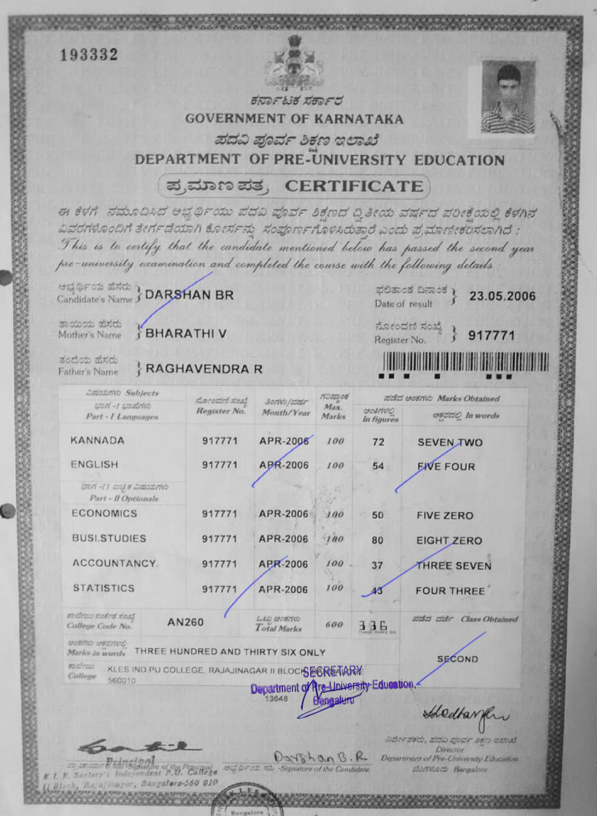 193332
ಕರ್ನಾಟಕ ಸರ್ಕಾರ
GOVERNMENT OF KARNATAKA
ಪದವಿ ಪೂರ್ವ ಶಿಕ್ಷಣ ಇಲಾಖೆ
DEPARTMENT OF PRE-UNIVERSITY EDUCATION
ಪ್ರಮಾಣ ಪತ್ರ CERTIFICATE
ಈ ಕೆಳಗೆ ನಮೂದಿಸಿದ ಅಭ್ಯರ್ಥಿಯು ಪದವಿ ಪೂರ್ವ ಶಿಕ್ಷಣದ ದ್ವಿತೀಯ ವರ್ಷದ ಪರೀಕ್ಷೆಯಲ್ಲಿ ಕೆಳಗಿನ
ವಿವರಗಳೊಂದಿಗೆ ತೇರ್ಗಡೆಯಾಗಿ ಕೋರ್ಸನ್ನು ಸಂಪೂರ್ಣಗೊಳಿಸಿರುತ್ತಾರೆ ಎಂದು ಪ್ರಮಾಣೀಕರಿಸಲಾಗಿದೆ :
This is to certify that the candidate mentioned below has passed the second year
pre-university examination and completed the course with the following details.
ಅಭ್ಯರ್ಥಿಯ ಹೆಸರು ಫಲಿತಾಂಶ ದಿನಾಂಕ
Candidate's Name } DARSHAN BR Date of result } 23.05.2006
ತಾಯಿಯ ಹೆಸರು ನೋಂದಣಿ ಸಂಖ್ಯೆ
Mother's Name } BHARATHI V Register No. } 917771
ತಂದೆಯ ಹೆಸರು
Father's Name } RAGHAVENDRA R
ವಿಷಯಗಳು Subjects ನೋಂದಣಿ ಸಂಖ್ಯೆ ತಿಂಗಳು/ವರ್ಷ ಗರಿಷ್ಠಾಂಕ ಪಡೆದ ಅಂಕಗಳು Marks Obtained
ಭಾಗ -I ಭಾಷೆಗಳು Register No. Month/Year Max. Marks ಅಂಕಿಗಳಲ್ಲಿ ಅಕ್ಷರದಲ್ಲಿ In words
Part - I Languages In figures
KANNADA 917771 APR-2006 100 72 SEVEN TWO
ENGLISH 917771 APR-2006 100 54 FIVE FOUR
ಭಾಗ -II ಐಚ್ಛಿಕ ವಿಷಯಗಳು
Part - II Optionals
ECONOMICS 917771 APR-2006 100 50 FIVE ZERO
BUSI.STUDIES 917771 APR-2006 100 80 EIGHT ZERO
ACCOUNTANCY. 917771 APR-2006 100 37 THREE SEVEN
STATISTICS 917771 APR-2006 100 43 FOUR THREE
ಕಾಲೇಜು ಸಂಕೇತ ಸಂಖ್ಯೆ ಒಟ್ಟು ಅಂಕಗಳು ಪಡೆದ ದರ್ಜೆ Class Obtained
College Code No. AN260 Total Marks 600 336
ಅಂಕಗಳು ಅಕ್ಷರಗಳಲ್ಲಿ
Marks in words THREE HUNDRED AND THIRTY SIX ONLY SECOND
ಕಾಲೇಜು KLES IND PU COLLEGE, RAJAJINAGAR II BLOCK
College 560010
SECRETARY
Department of Pre-University Education,
Bengaluru
13648
Darshan B.R
Principal
Signature of the Candidate
ನಿರ್ದೇಶಕರು, ಪದವಿ ಪೂರ್ವ ಶಿಕ್ಷಣ ಇಲಾಖೆ
Director
Department of Pre-University Education
ಬೆಂಗಳೂರು Bangalore
K.L.E. Society's Independent P.U. College
II Block, Rajajinagar, Bangalore-560 010
Bangalore